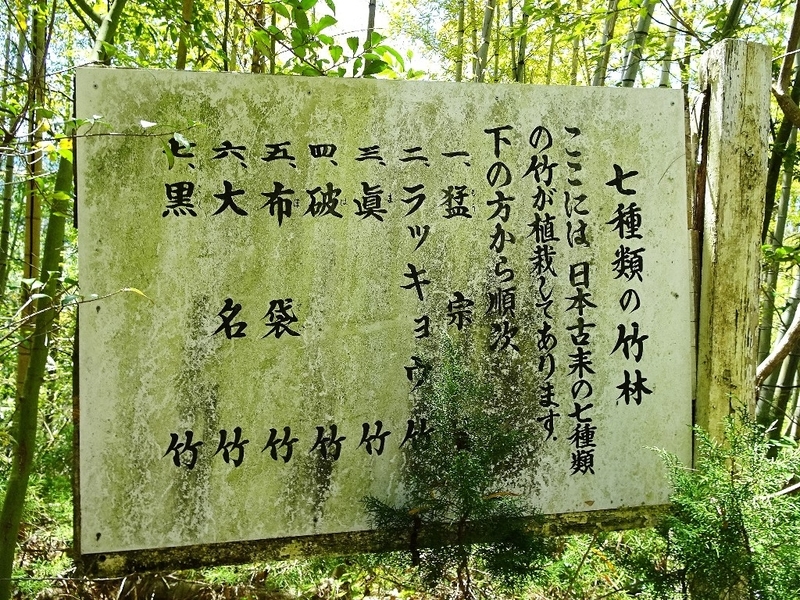 七種類の竹林
ここには日本古来の七種類
の竹が植栽してあります.
下の方から順次
一、猛宗
二、ラッキョウ竹
三、眞竹
四、破竹
五、布袋竹
六、大名竹
七、黒竹